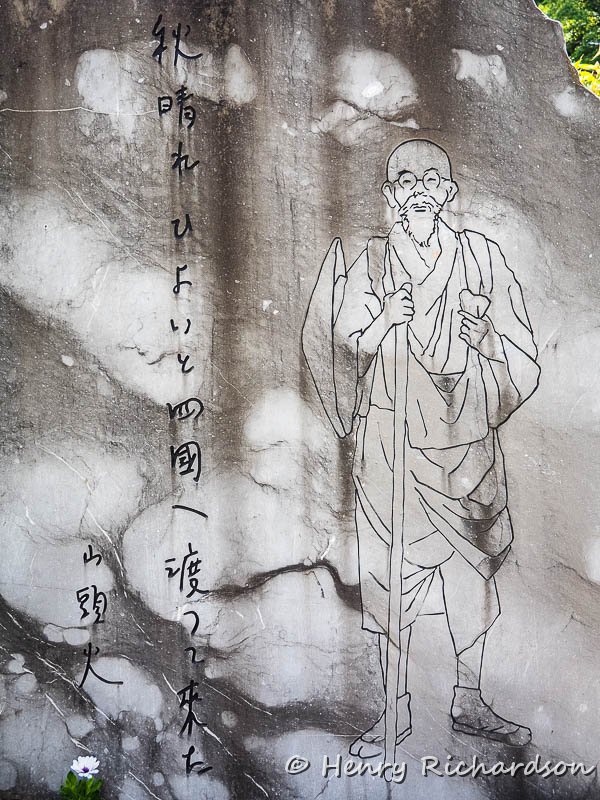 秋晴れひよいと四國へ渡つて來た
山頭火
© Henry Richardson